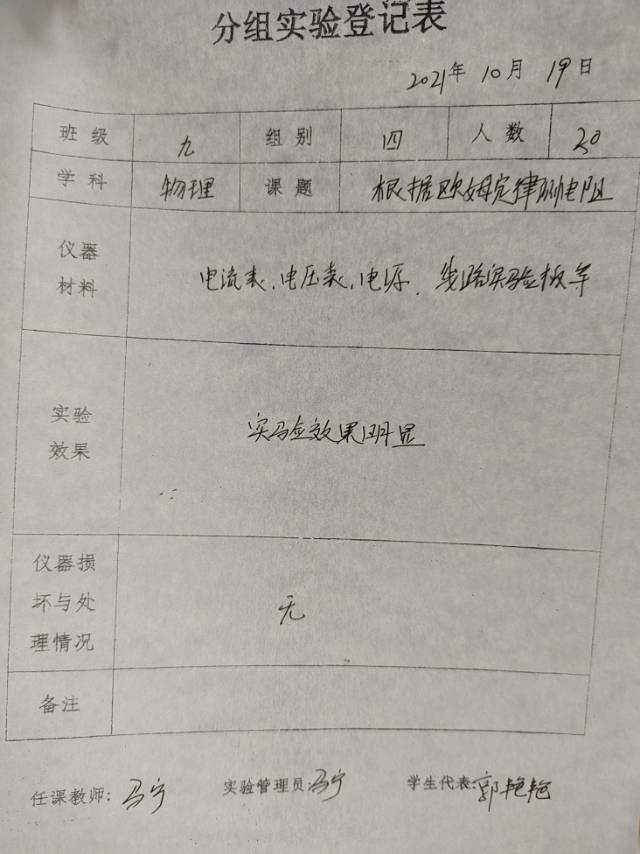 分组实验登记表
2021年 10月 19日
班级 九 组别 四 人数 20
学科 物理 课题 根据欧姆定律测电阻
仪器
材料 电流表、电压表、电源、线路实验板等
实验
效果 实验效果明显
仪器损
坏与处 无
理情况
备注
任课教师: 马宁 实验管理员:马宁 学生代表:郭艳艳